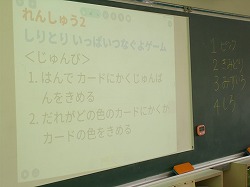 れんしゅう2
しりとり いっぱいつなぐよゲーム
<じゅんび>
1. はんで カードにかくじゅんば
んをきめる
2. だれがどの色のカードにかくか
カードの色をきめる
1 ピンク
2 きみどり
3 みずいろ
4 しろ